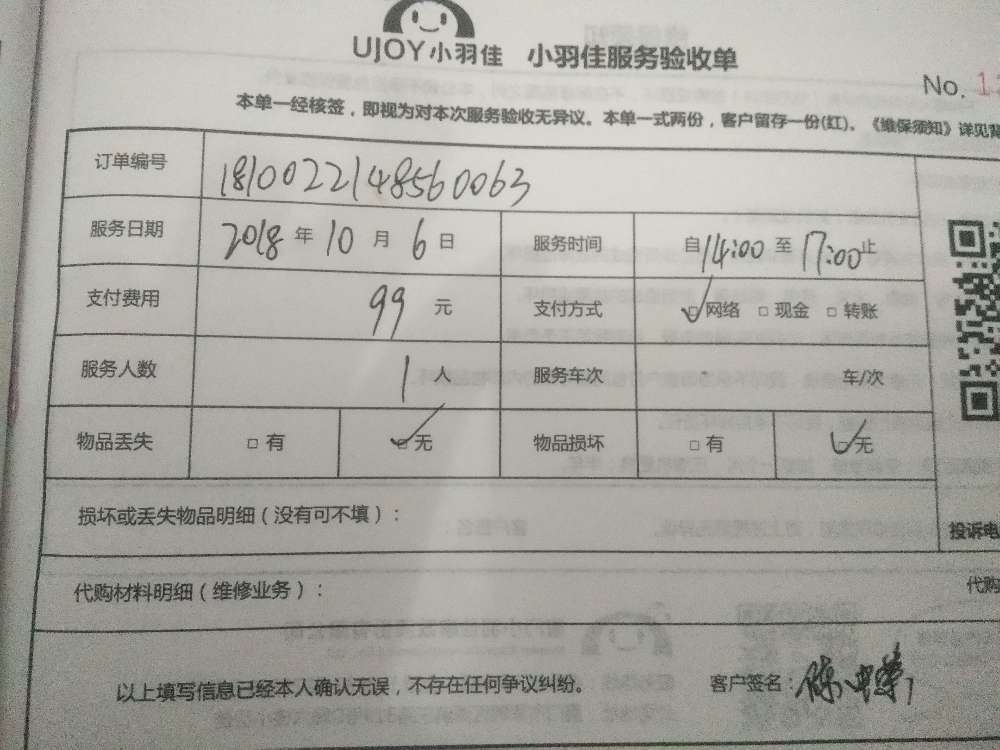 UJOY小羽佳 小羽佳服务验收单
No.1
本单一经核签，即视为对本次服务验收无异议。本单一式两份，客户留存一份(红)。《维保须知》详见背
订单编号 1810022148560063
服务日期 2018 年 10 月 6 日 服务时间 自 14:00 至 17:00 止
支付费用 99 元 支付方式 □网络 □现金 □转账
服务人数 1 人 服务车次 车/次
物品丢失 □有 □无 物品损坏 □有 □无
损坏或丢失物品明细（没有可不填）：
投诉电
代购材料明细（维修业务）： 代购
以上填写信息已经本人确认无误，不存在任何争议纠纷。 客户签名：陈